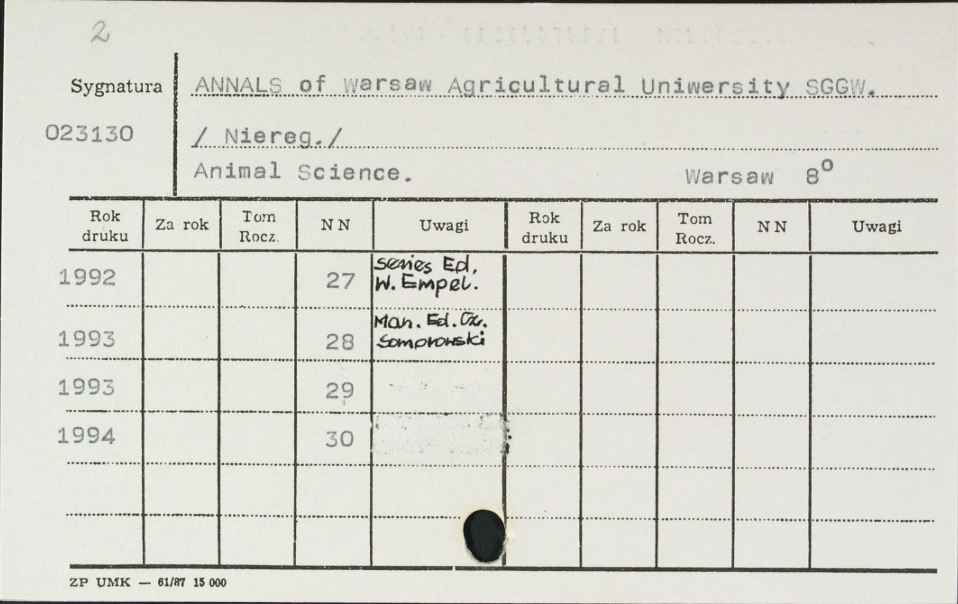 2
Sygnatura ANNALS of Warsaw Agricultural Uniwersity SGGW.
023130 / Niereg./
Animal Science. Warsaw 8⁰
Rok druku Za rok Tom Rocz. NN Uwagi Rok druku Za rok Tom Rocz. NN Uwagi
1992 27 Series Ed. W. Empel.
1993 28 Man. Ed. Cz. Somorowski
1993 29
1994 30
ZP UMK — 61/87 15 000